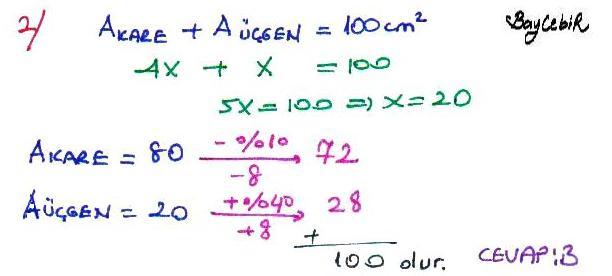 2/ AKARE + AÜÇGEN = 100cm² BayCebiR
4X + X = 100
5X = 100 => X = 20
AKARE = 80 -%10 -8 72
AÜÇGEN = 20 +%40 +8 28
+
100 olur. CEVAP:B